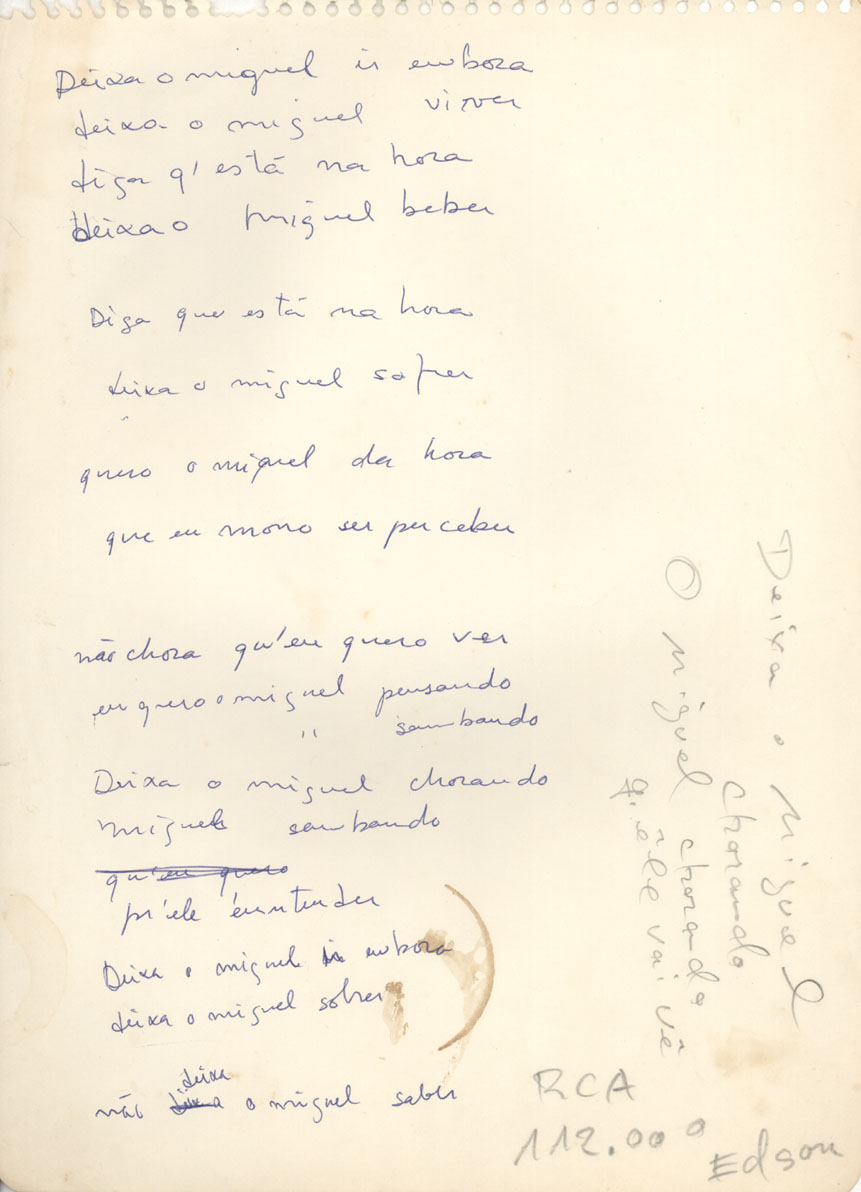 Deixa o miguel ir embora
deixa o miguel viver
diga q' está na hora
deixa o Miguel beber
Diga que está na hora
deixa o miguel sofrer
quero o miguel da hora
que eu morro ser perceber
não chora qu'eu quero ver
eu quero o miguel pensando
" sambando
Deixa o miguel chorando
Miguel sambando
qu'eu quero
pr'ele entender
Deixa o miguel ir embora
deixa o miguel sofrer
deixa
não deixa o miguel saber
Deixa o Miguel
chorando
O Miguel chorando
q. êle vai vê
RCA
112.000
Edson